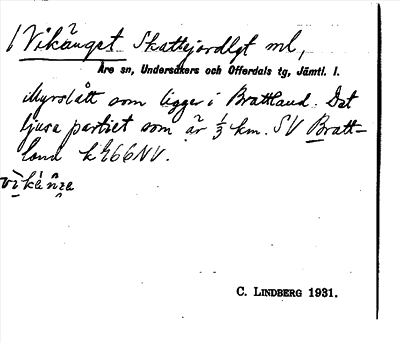 1 Vikänget Skattejordlgt ml,
Åre sn, Undersåkers och Offerdals tg, Jämtl. l.
Myrslått som ligger i Brattland. Det
ljusa partiet som är ⅓ km. SV Bratt-
land k 466NV.
C. LINDBERG 1931.